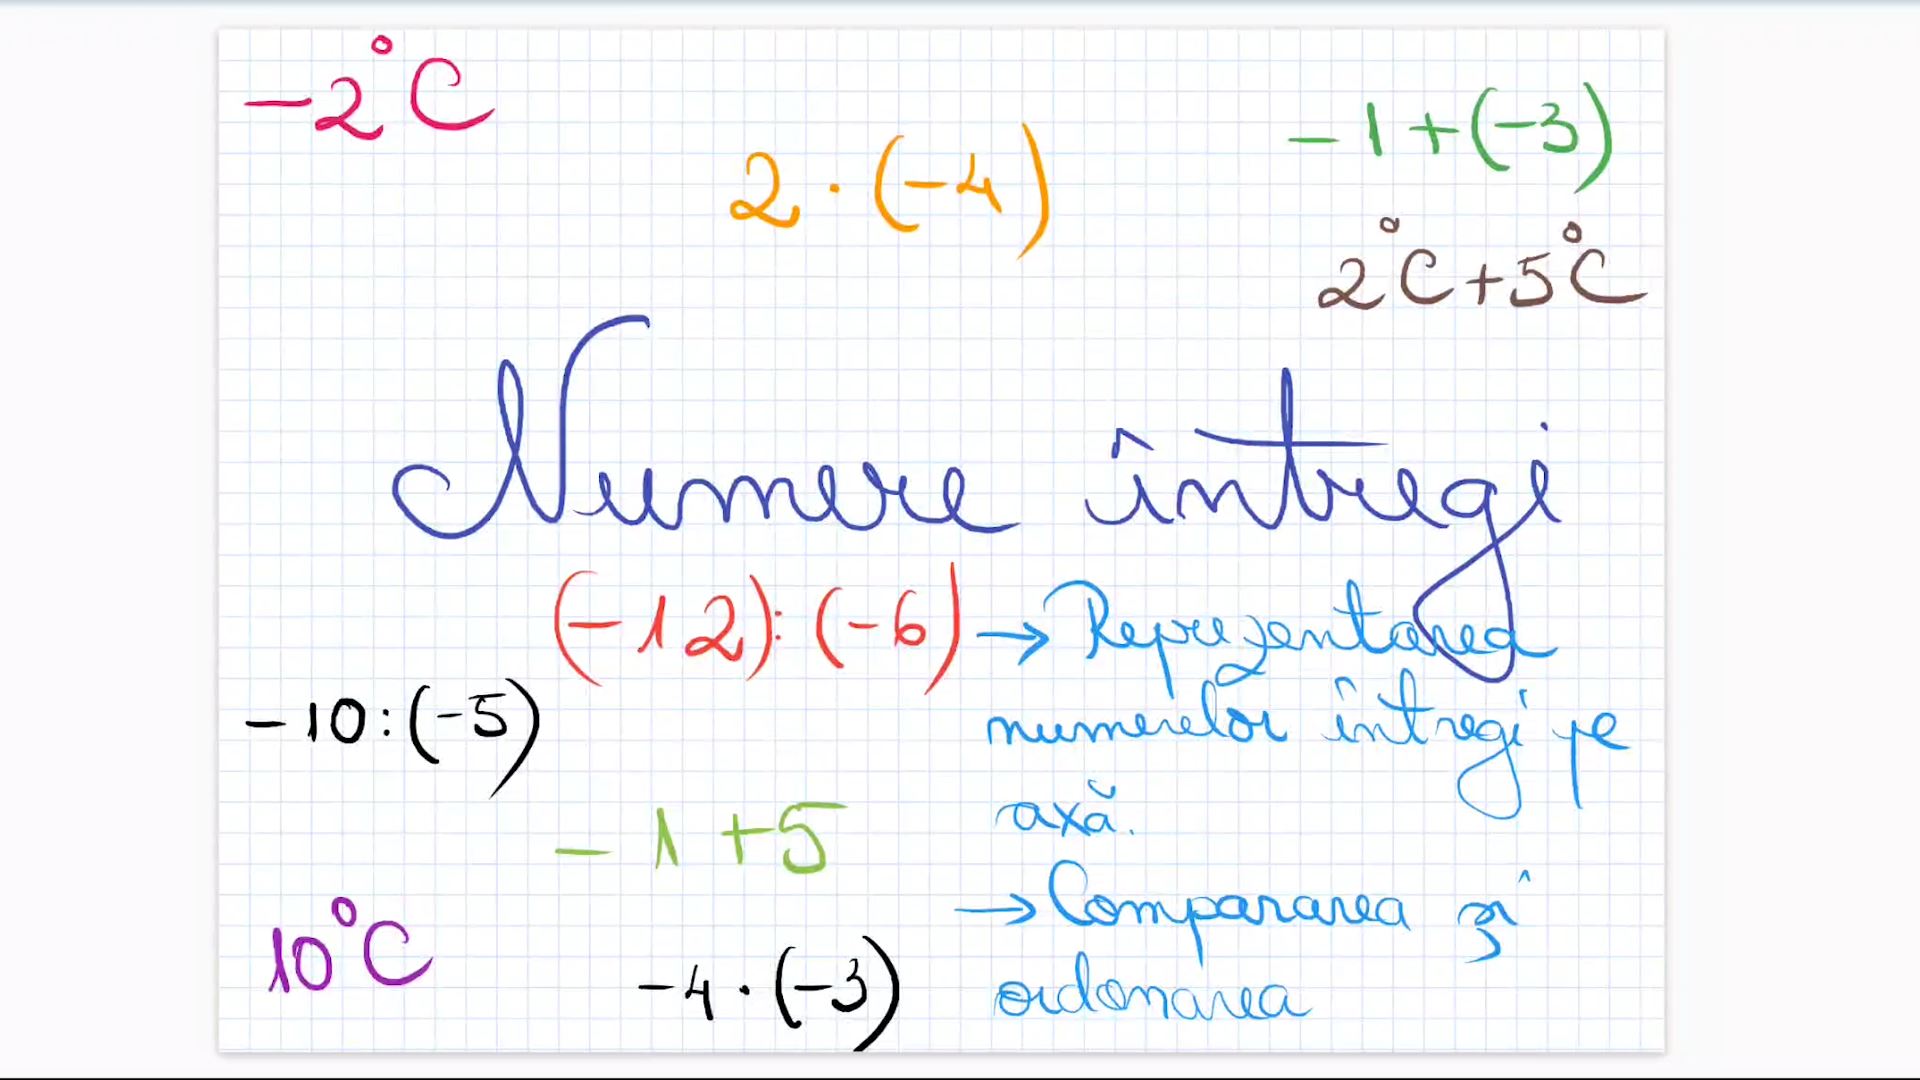 -2°C
2 · (-4)
-1+(-3)
2°C+5°C
Numere întregi
(-12):(-6)
→ Reprezentarea
numerelor întregi pe
axă.
-10:(-5)
-1+5
→ Compararea și
ordonarea
10°C
-4·(-3)